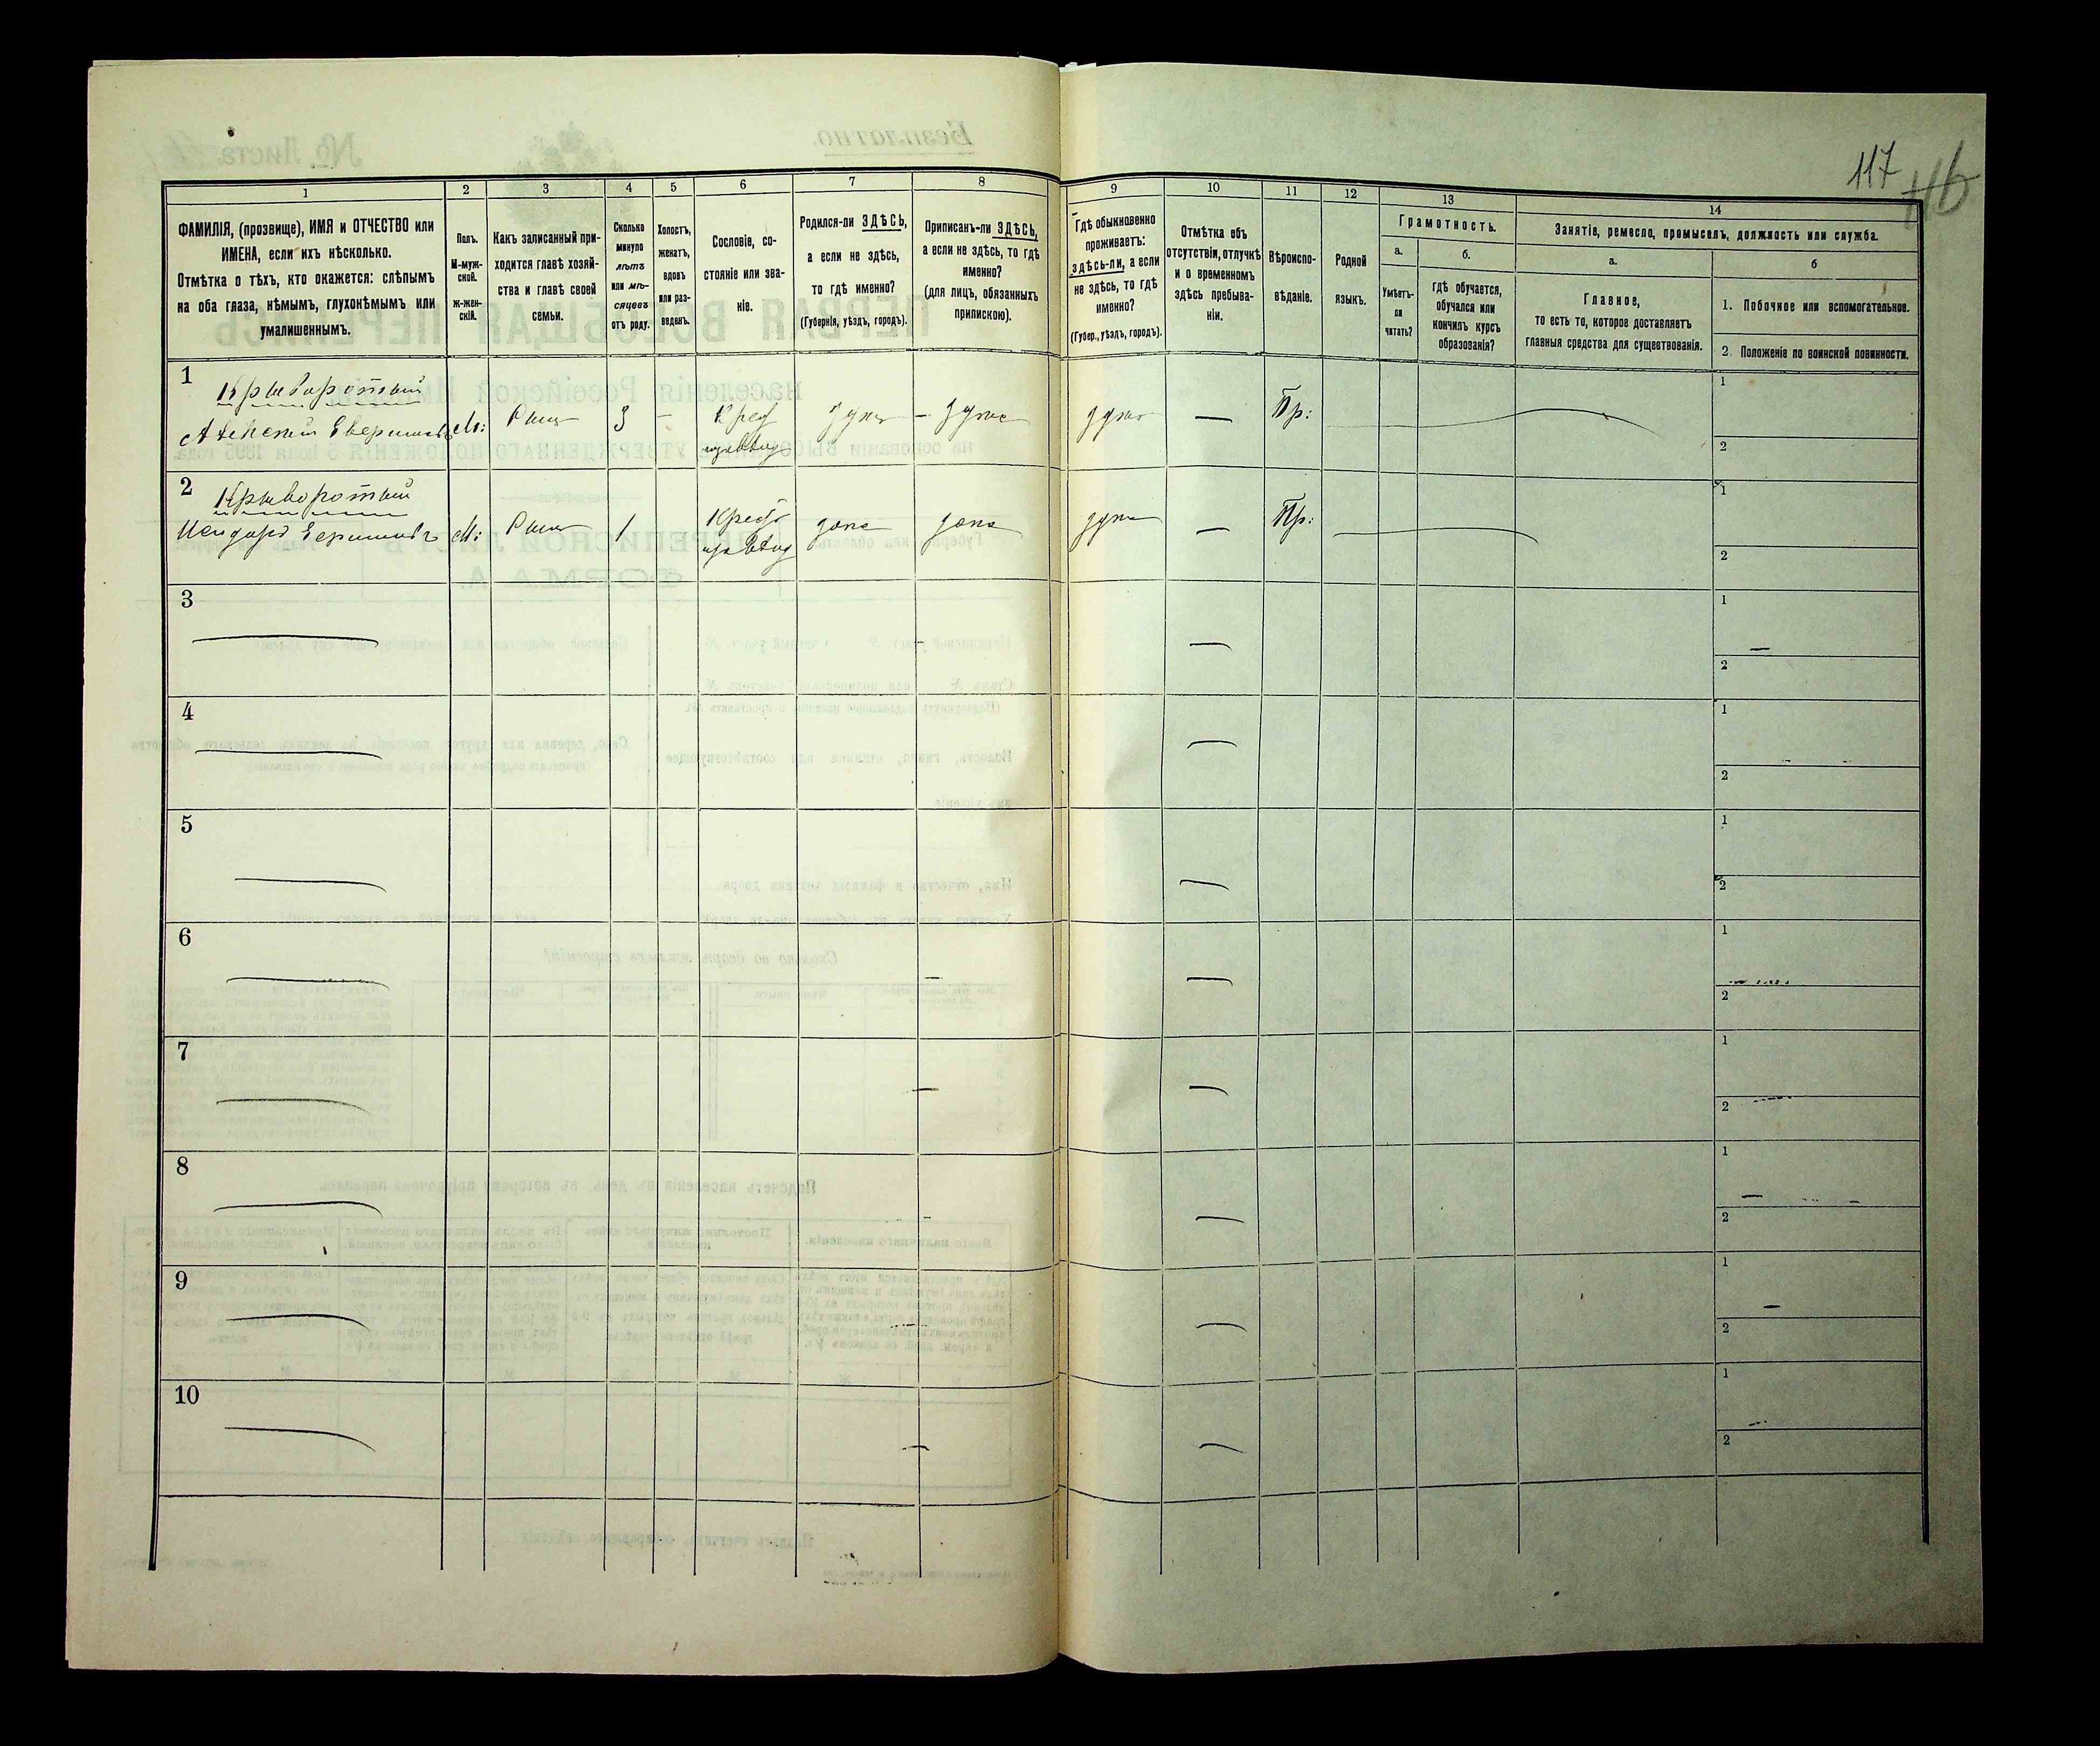 117
116
1
2
3
4
5
6
7
8
ФАМИЛІЯ, (прозвище), ИМЯ и ОТЧЕСТВО или
ИМЕНА, если ихъ нѣсколько.
Отмѣтка о тѣхъ, кто окажется: слѣпымъ
на оба глаза, нѣмымъ, глухонѣмымъ или
умалишеннымъ.
Полъ.
М-муж-
ской.
ж-жен-
скій.
Какъ записанный при-
ходится главѣ хозяй-
ства и главѣ своей
семьи.
Сколько
минуло
лѣтъ
или мѣ-
сяцевъ
отъ роду.
Холостъ,
женатъ,
вдовъ
или раз-
веденъ.
Сословіе, со-
стояніе или зва-
ніе.
Родился-ли ЗДѢСЬ,
а если не здѣсь,
то гдѣ именно?
(Губернія, уѣздъ, городъ).
Приписанъ-ли ЗДѢСЬ,
а если не здѣсь, то гдѣ
именно?
(для лицъ, обязанныхъ
припискою).
9
10
11
12
13
14
Гдѣ обыкновенно
проживаетъ:
здѣсь-ли, а если
не здѣсь, то гдѣ
именно?
(Губер., уѣздъ, городъ).
Отмѣтка объ
отсутствіи, отлучкѣ
и о временномъ
здѣсь пребыва-
ніи.
Вѣроиспо-
вѣданіе.
Родной
языкъ.
Грамотность.
а.
б.
Умѣетъ-
ли
читать?
гдѣ обучается,
обучался или
кончилъ курсъ
образованія?
Занятіе, ремесло, промыселъ, должность или служба.
а.
б
Главное,
то есть то, которое доставляетъ
главныя средства для существованія.
1. Побочное или вспомогательное.
2. Положеніе по воинской повинности.
1
Криворотый
Алексей М: Сынъ 3 — Крест здѣсь — здѣсь здѣсь — Пр:
1
2
2
Криворотый
М: Сынъ 1 Крест здѣсь здѣсь здѣсь — Пр:
1
2
3
1
2
4
1
2
5
1
2
6
1
2
7
1
2
8
1
2
9
1
2
10
1
2